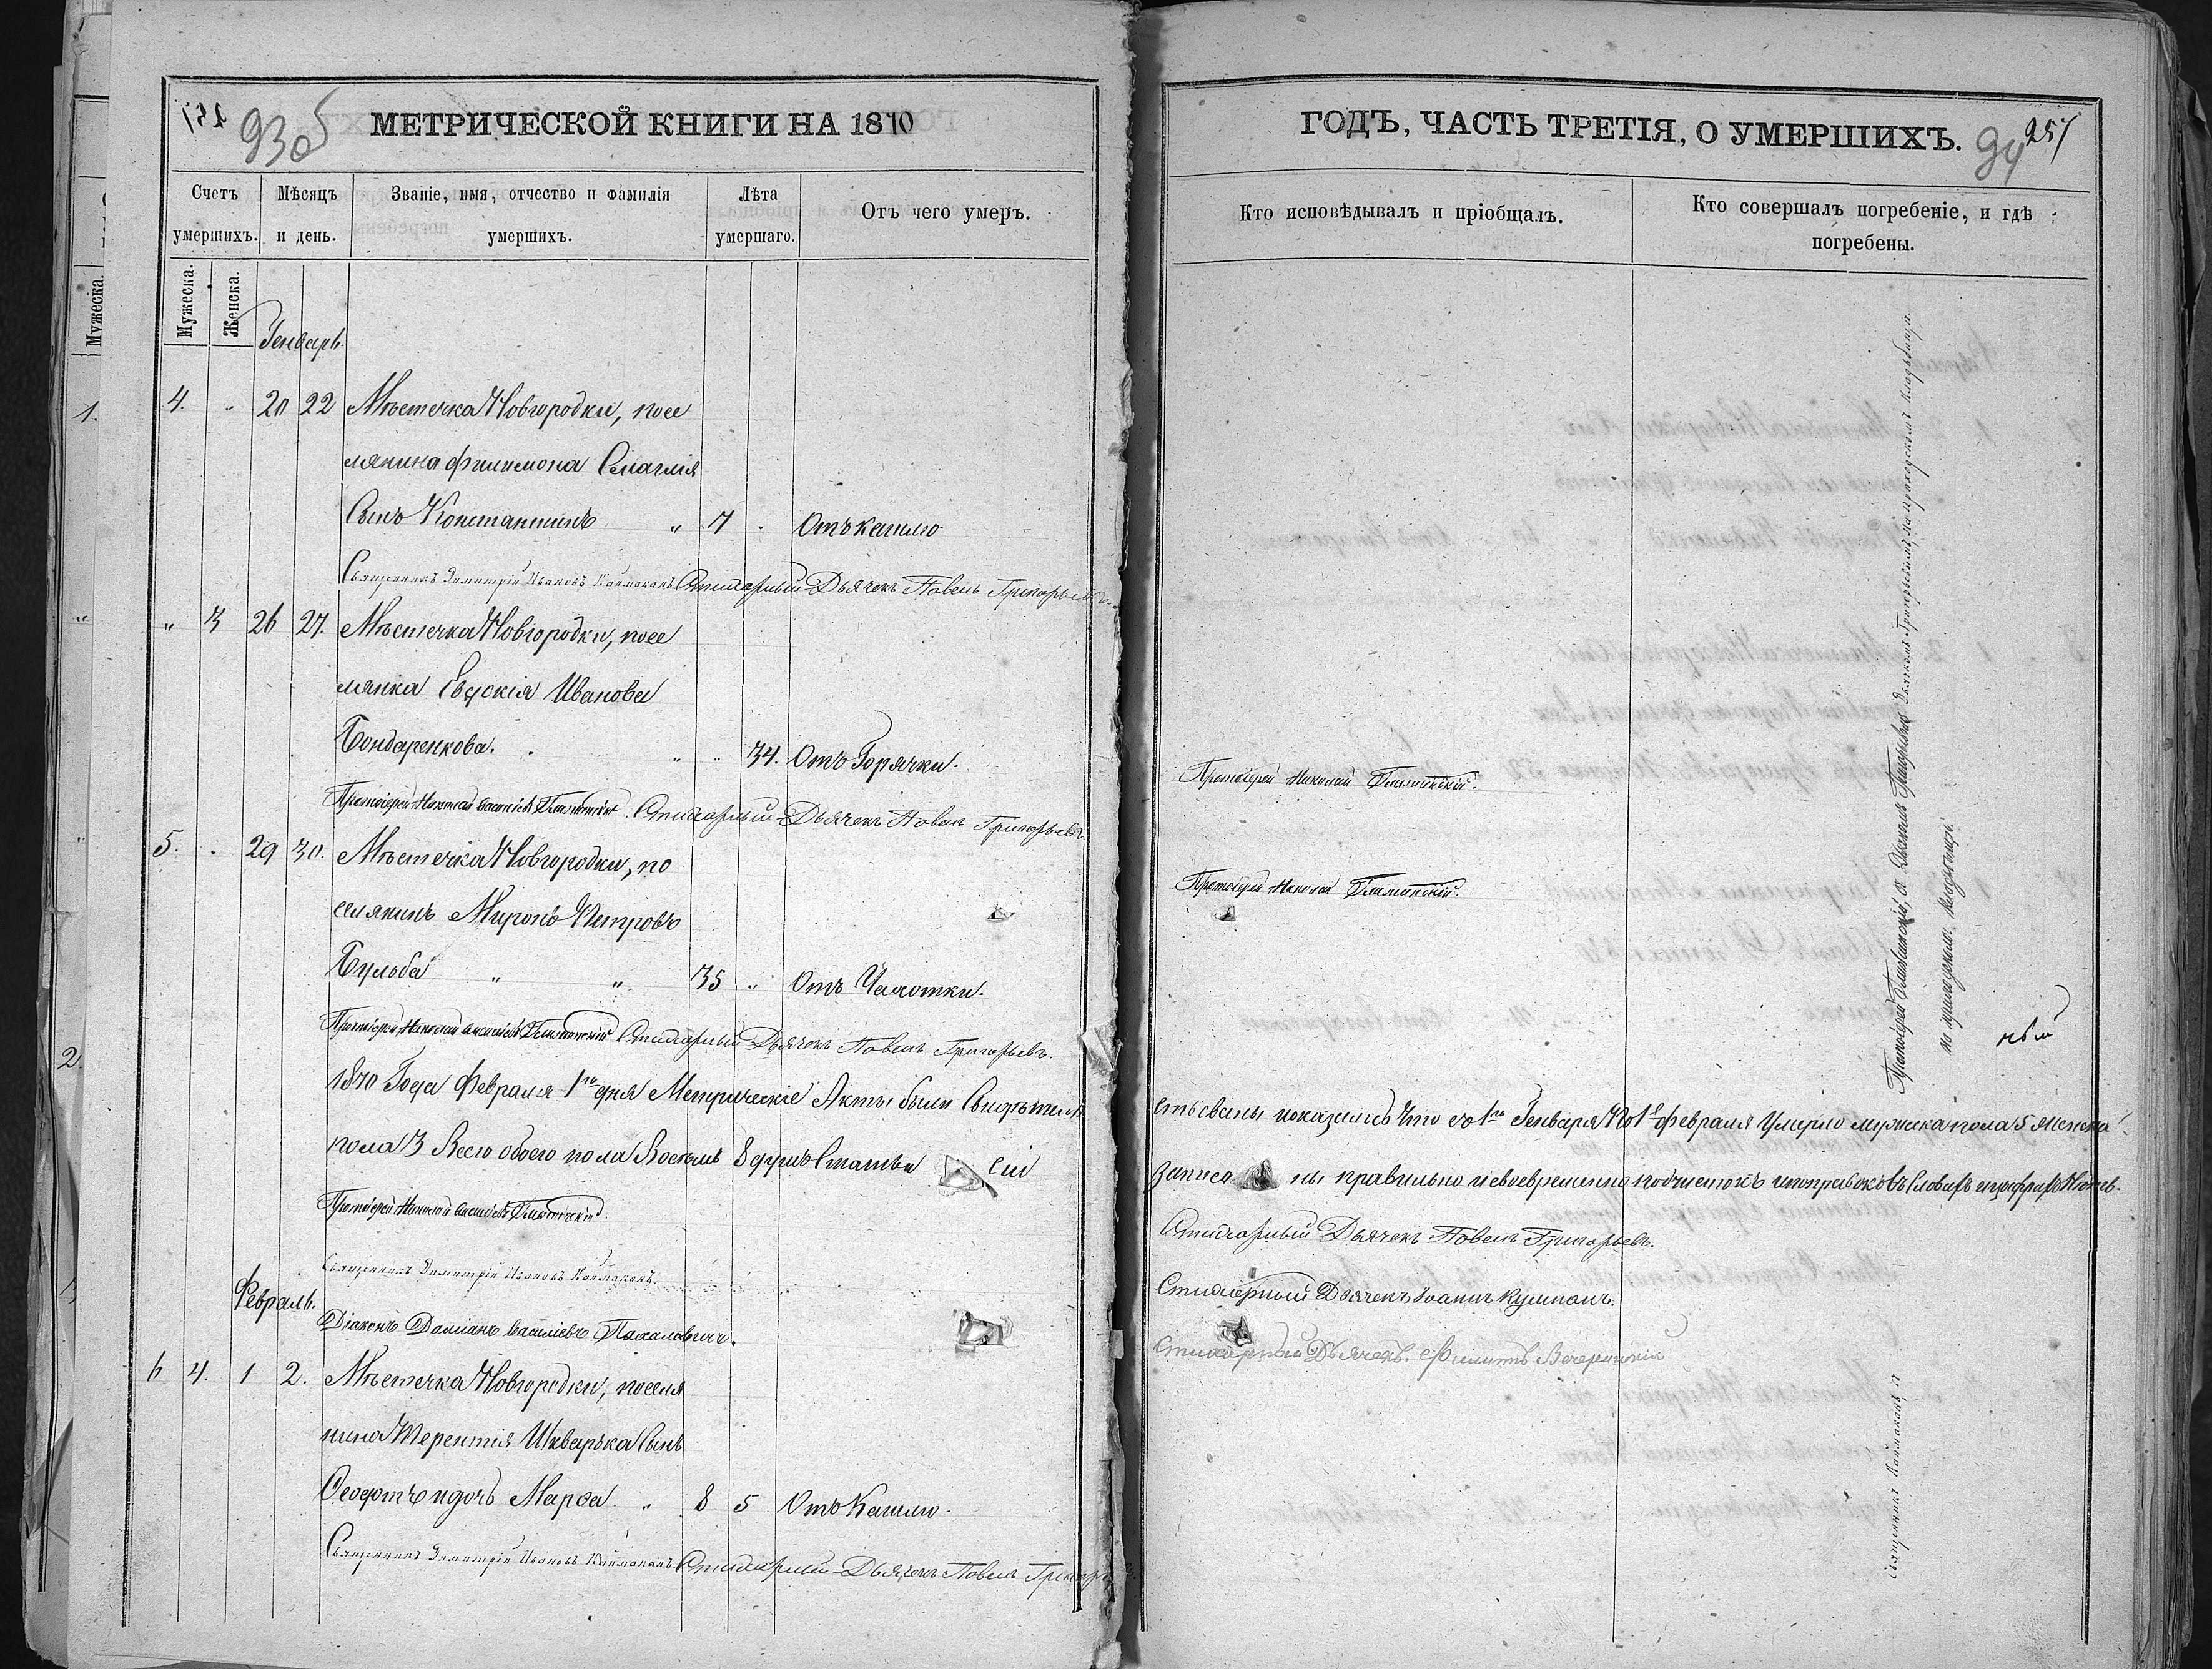 257
93об
МЕТРИЧЕСКОЙ КНИГИ НА 1870
Счетъ умершихъ.
Мѣсяцъ и день.
Званіе, имя, отчество и фамилія умершихъ.
Лѣта умершаго.
Отъ чего умеръ.
Мужеска.
Женска.
Генварь.
4. " 20 22 Мѣстечка Новгородки, посе
лянина Филимона Смаглія
Сынъ Константинъ " 7 . Отъ кашлю
Священникъ Димитрій Ивановъ Каймаканъ Стихарный Дьячекъ Павелъ Григорьевъ.
" 3 26 27. Мѣстечка Новгородки, посе
лянка Евдокія Иванова
Бондаренкова. " " 34. Отъ Горячки.
Протоіерей Николай Васильевъ Стихарный Дьячекъ Павелъ Григорьевъ.
5. . 29 30. Мѣстечка Новгородки, по
селянинъ Миронъ Петровъ
Бульба " " 35 " Отъ Чахотки.
Протоіерей Николай Васильевъ Стихарный Дьячекъ Павелъ Григорьевъ.
1870 Года Февраля 1го дня Метрическіе Акты были Свидѣтель
пола 3 Всего обоего пола Восемь 8 душъ Статьи сіи
Протоіерей Николай Васильевъ
Священникъ Димитрій Ивановъ Каймаканъ.
Февраль.
Діаконъ Даміанъ Василіевъ
6 4. 1 2. Мѣстечка Новгородки, поселя
нина Терентія Шкварька Сынъ
Феодотъ и дочь Марфа. " 8 5 Отъ Кашлю.
Священникъ Димитрій Ивановъ Каймаканъ. Стихарный Дьячекъ Павелъ
ГОДЪ, ЧАСТЬ ТРЕТІЯ, О УМЕРШИХЪ.
94
257
Кто исповѣдывалъ и пріобщалъ.
Кто совершалъ погребеніе, и гдѣ погребены.
Протоіерей Николай
Протоіерей Николай
Протоіерей Дьячкомъ Григорьевымъ, на приходскомъ Кладбищѣ
на приходскомъ Кладбищѣ.
ный
ствованы показались Что съ 1го Генваря По 1е Февраля Умерло мужеска пола 5 женска
записаны правильно и своевременно подчистокъ и поправокъ въ Словахъ и цифрахъ Нѣтъ.
Стихарный Дьячекъ Павелъ Григорьевъ.
Стихарный Дьячекъ Іоаннъ
Стихарный Дьячекъ. Филиппъ
Священникъ Каймаканъ, и